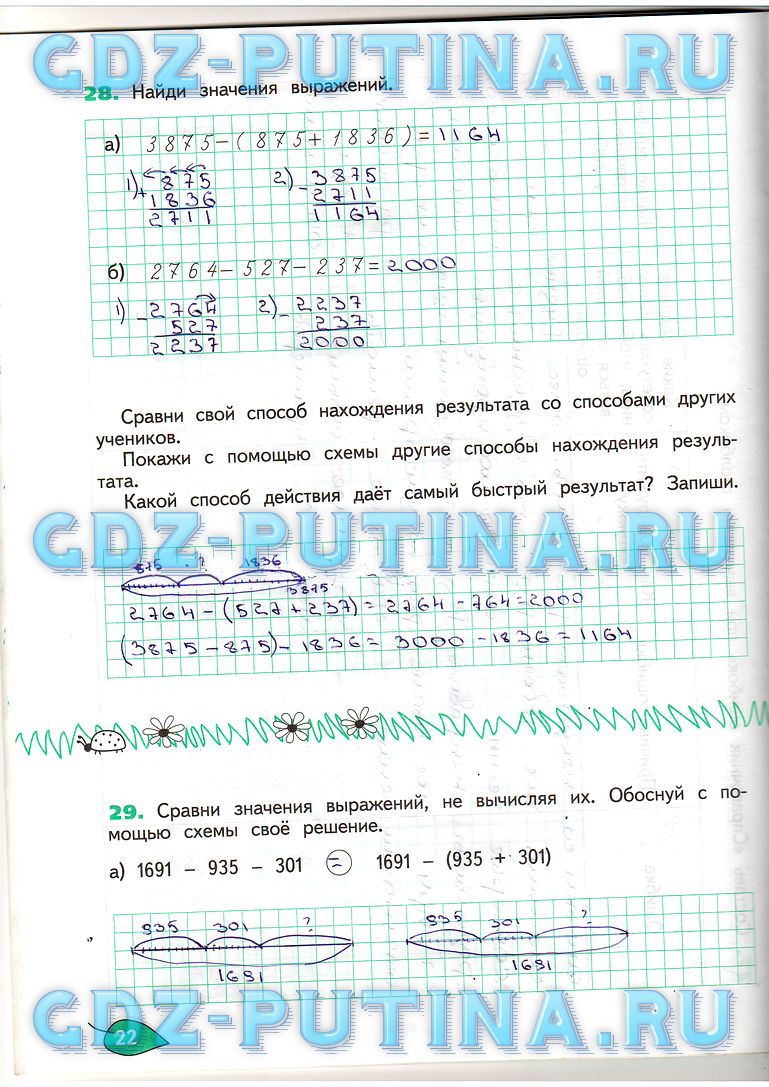 GDZ-PUTINA.RU
28. Найди значения выражений.
а) 3875-(875+1836)=1164
1) + 875 2) - 3875
1836 2711
2711 1164
б) 2764-527-237=2000
1) - 2764 2) - 2237
527 237
2237 2000
Сравни свой способ нахождения результата со способами других
учеников.
Покажи с помощью схемы другие способы нахождения резуль-
тата.
Какой способ действия даёт самый быстрый результат? Запиши.
GDZ-PUTINA.RU
875 ? 1836
3875
2764-(527+237)=2764-764=2000
(3875-875)-1836=3000-1836=1164
29. Сравни значения выражений, не вычисляя их. Обоснуй с по-
мощью схемы своё решение.
а) 1691 - 935 - 301 = 1691 - (935 + 301)
935 301 ? 935 301 ?
1691 1691
GDZ-PUTINA.RU
22